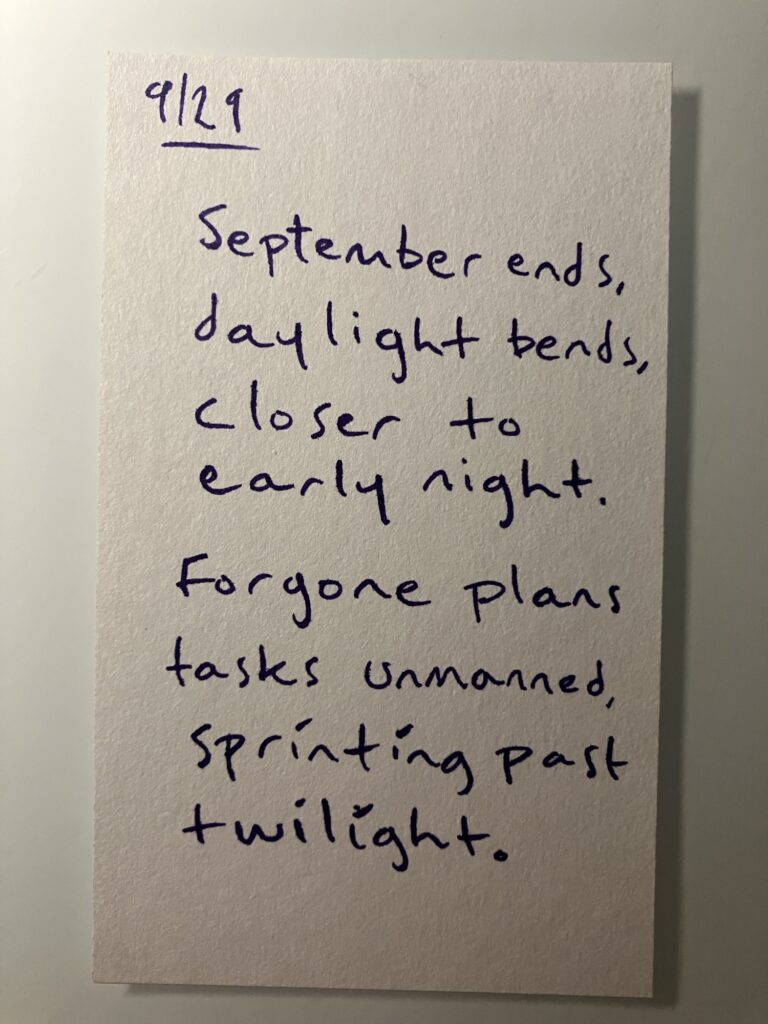 9/29
September ends,
daylight bends,
closer to
early night.
Forgone plans
tasks unmanned,
sprinting past
twilight.